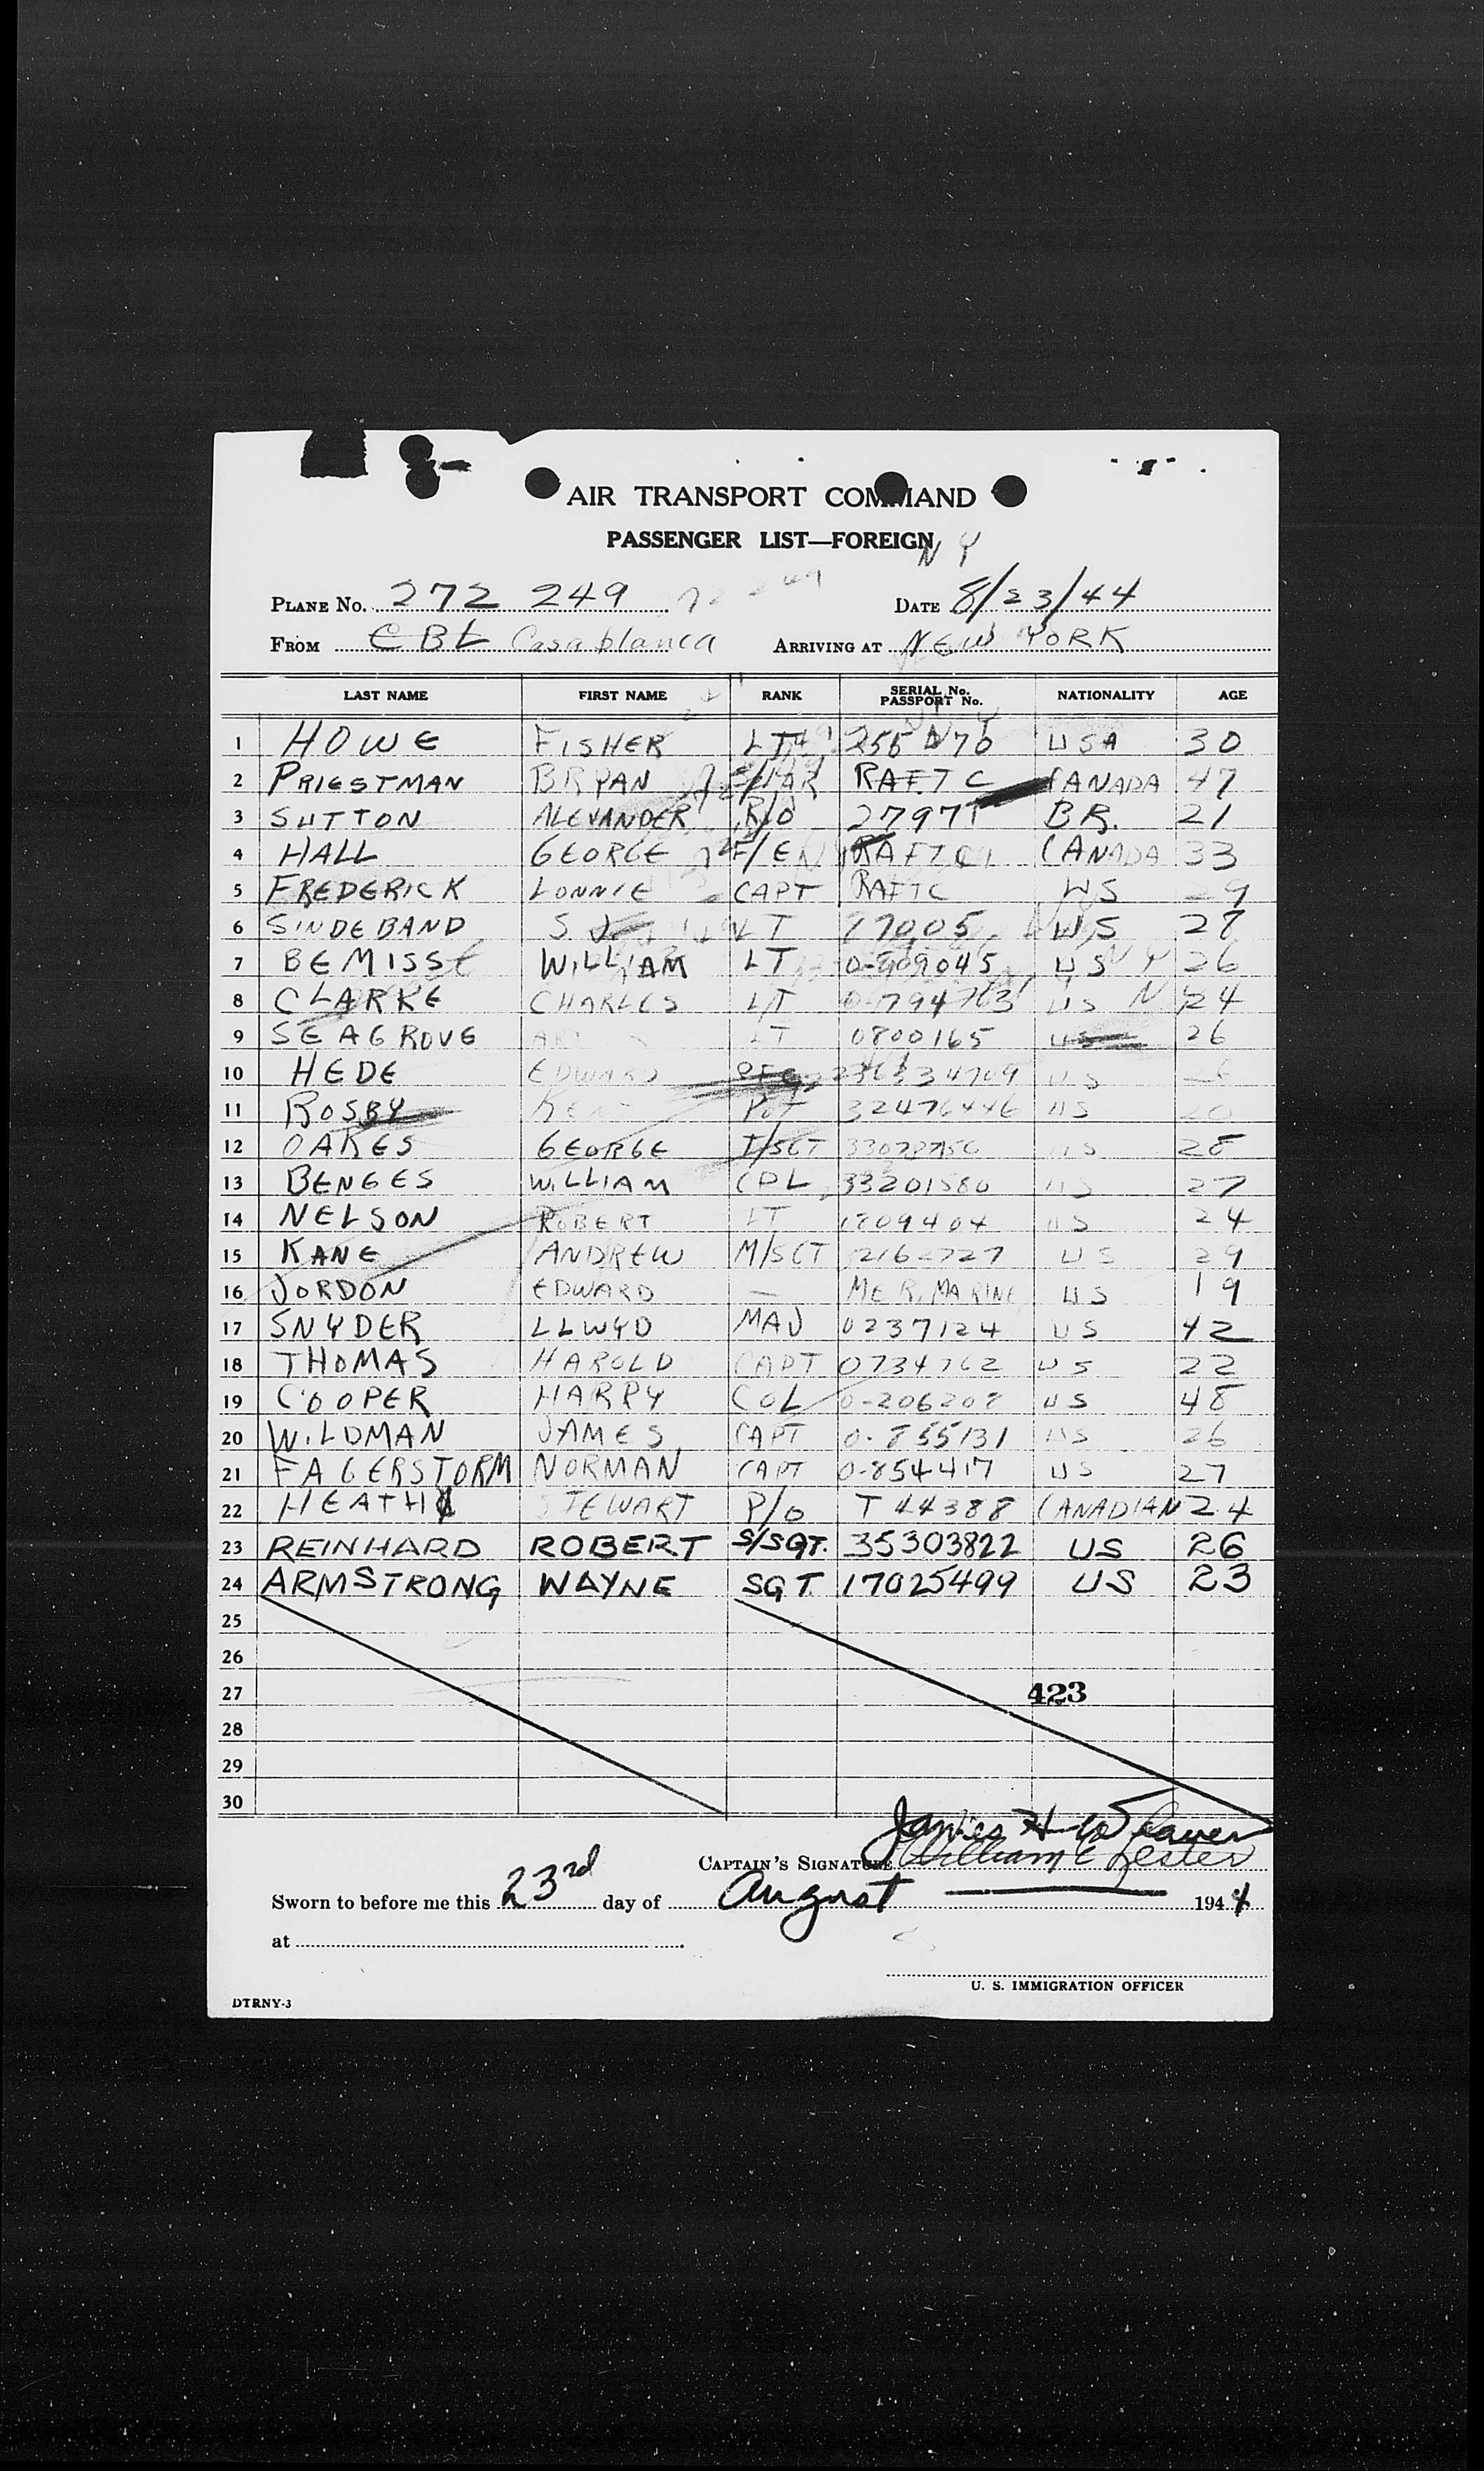 AIR TRANSPORT COMMAND
PASSENGER LIST—FOREIGN
N Y
PLANE No. 272 249 DATE 8/23/44
FROM CBL Casablanca ARRIVING AT NEW YORK
LAST NAME FIRST NAME RANK SERIAL No. PASSPORT No. NATIONALITY AGE
1 HOWE FISHER LT USA 30
2 PRIESTMAN BRYAN RAFTC CANADA 47
3 SUTTON ALEXANDER R/O 27977 BR. 21
4 HALL GEORGE F/E RAFTC CANADA 33
5 FREDERICK LONNIE CAPT RAFTC US 29
6 SINDEBAND S. J. LT 17005 US 27
7 BEMISS WILLIAM LT 0-909045 US 26
8 CLARKE CHARLES LT 0-794763 US 24
9 SEAGROVE LT 0800165 US 26
10 HEDE EDWARD PFC US
11 ROSBY KENT PVT 32476446 US 20
12 OAKES GEORGE T/SGT US 28
13 BENGES WILLIAM CPL 33201580 US 27
14 NELSON ROBERT LT 1809404 US 24
15 KANE ANDREW M/SGT US 29
16 JORDON EDWARD — MER. MARINE US 19
17 SNYDER LLWYD MAJ 0237124 US 42
18 THOMAS HAROLD CAPT 0734762 US 22
19 COOPER HARRY COL 0-206208 US 48
20 WILDMAN JAMES CAPT 0-855131 US 26
21 FAGERSTORM NORMAN CAPT 0-854417 US 27
22 HEATH STEWART P/O T 44388 CANADIAN 24
23 REINHARD ROBERT S/SGT. 35303822 US 26
24 ARMSTRONG WAYNE SGT. 17025499 US 23
25
26
27 423
28
29
30
James H Weaver
CAPTAIN'S SIGNATURE William C Lester
Sworn to before me this 23rd day of August 1944
at
U. S. IMMIGRATION OFFICER
DTRNY-3